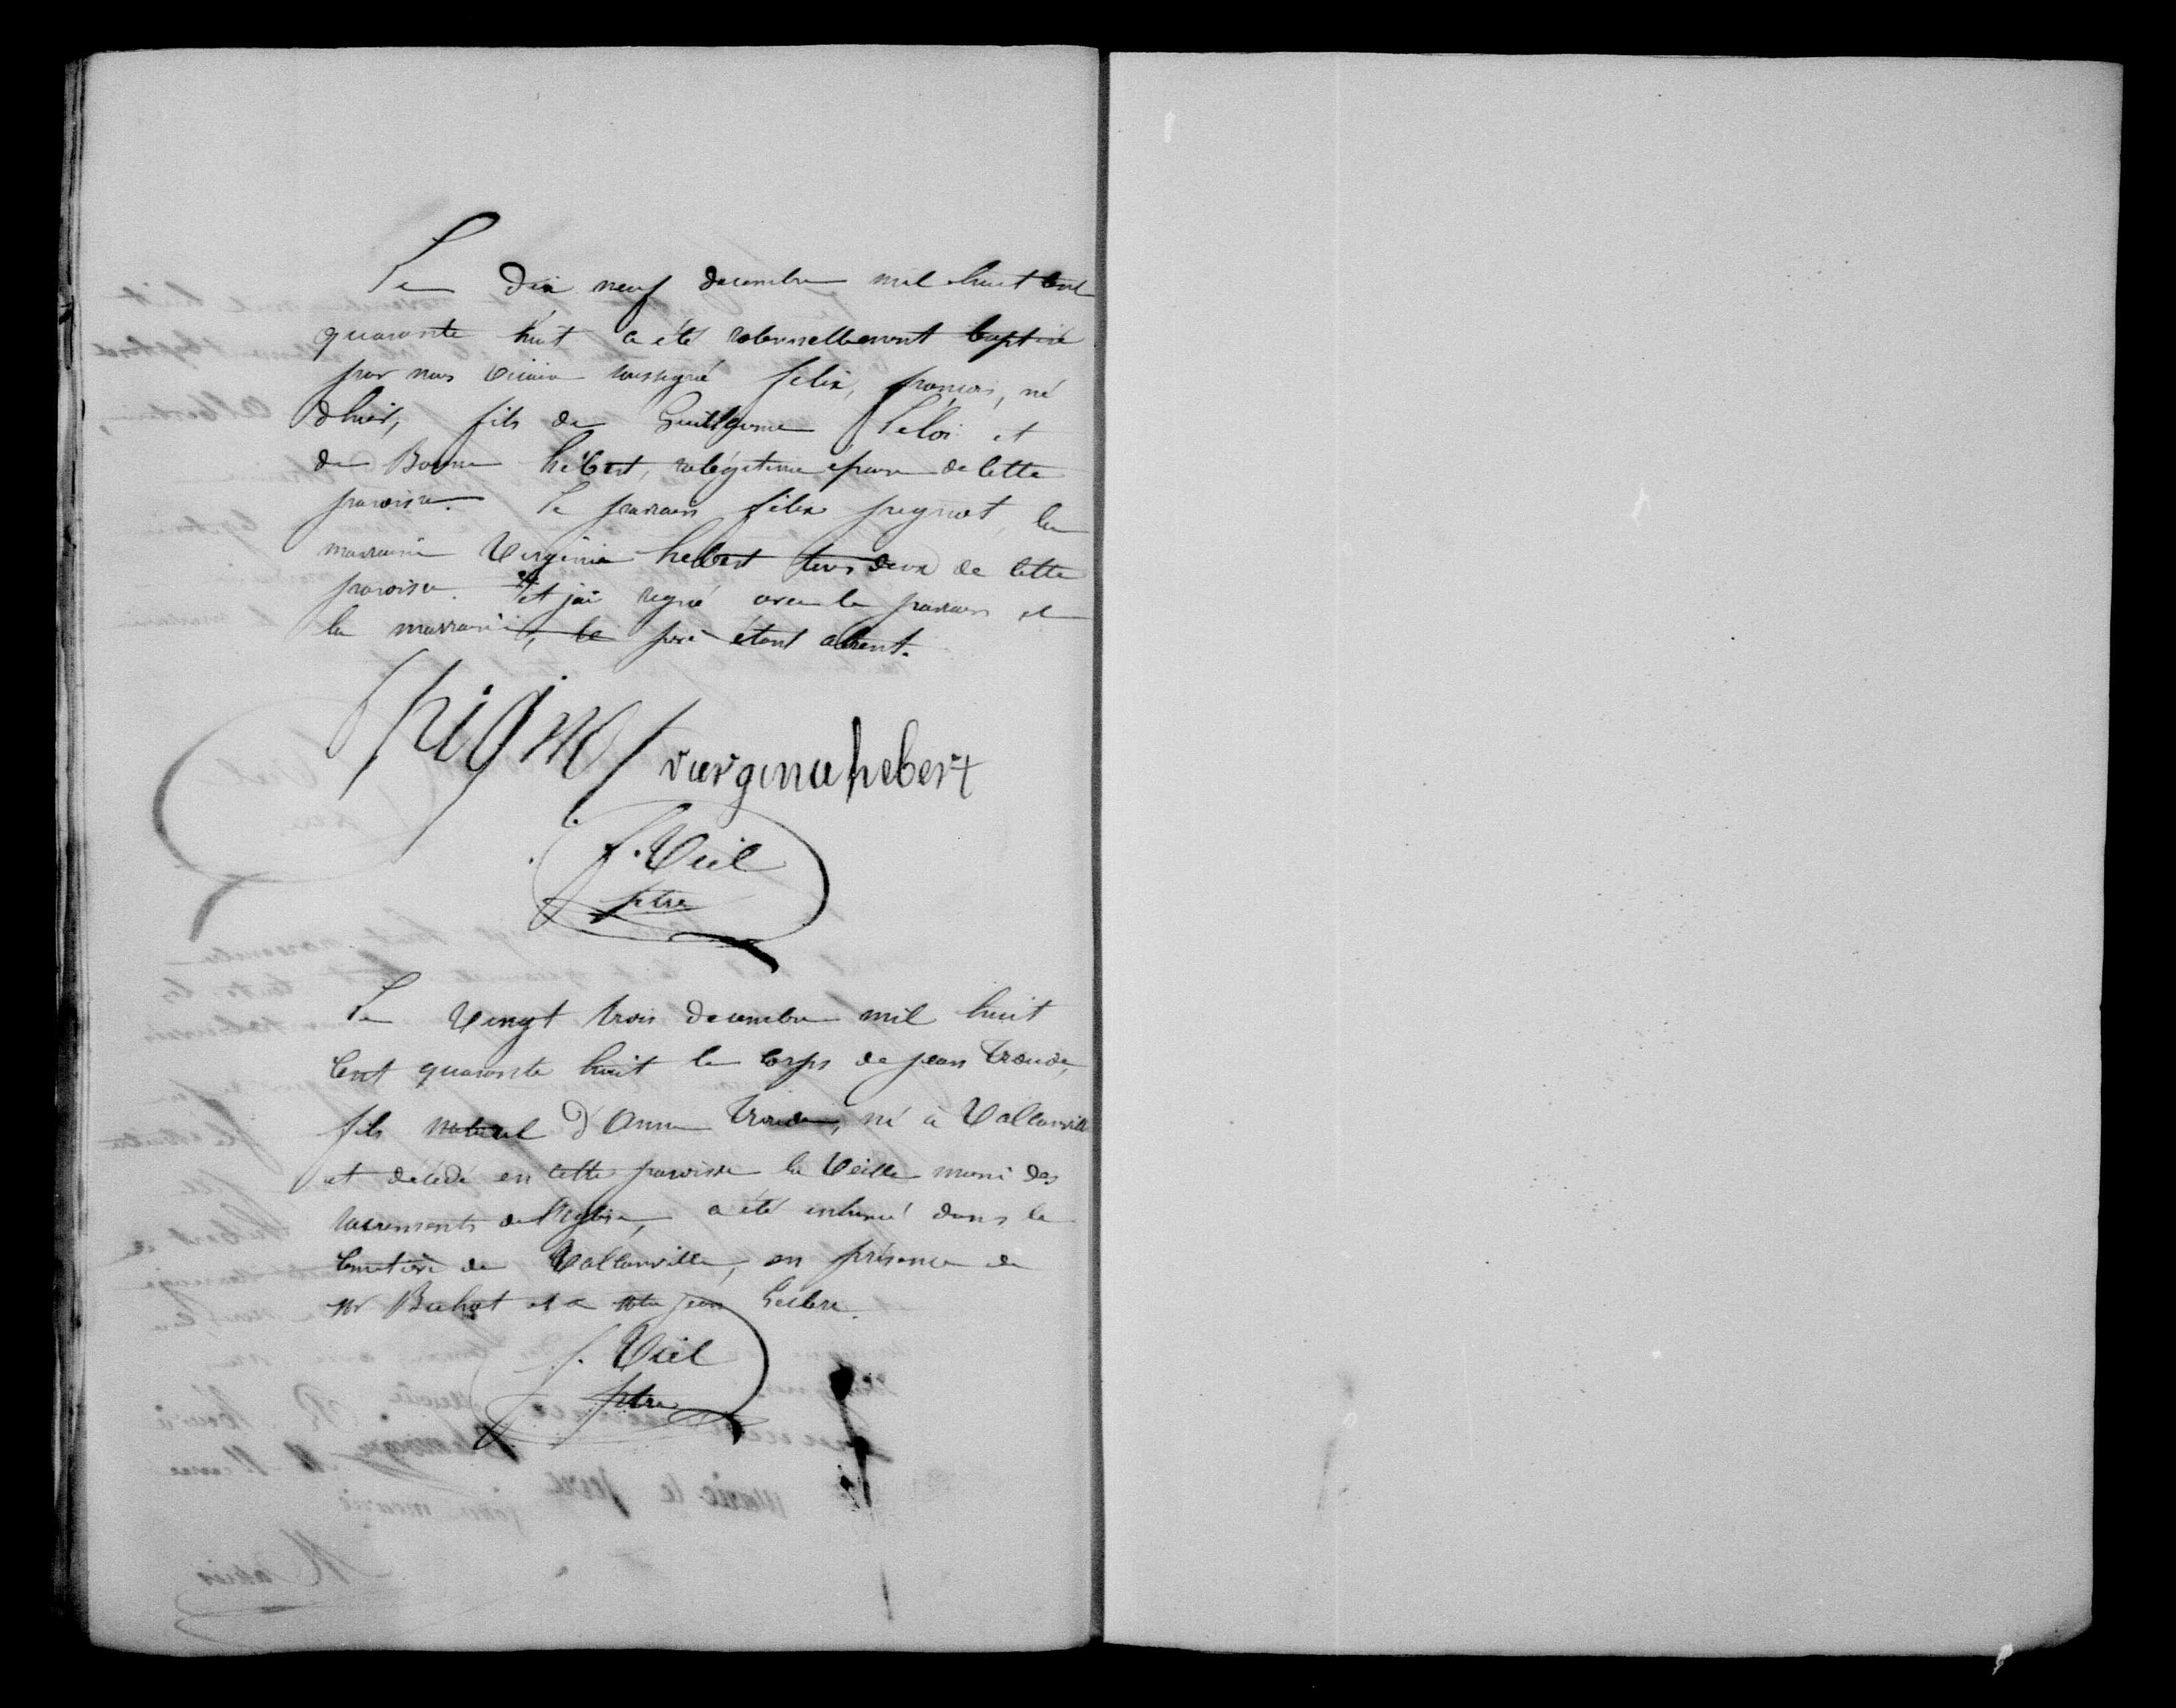 Le Dix neuf decembre mil huit cent
quarante huit a été solennellement baptisé
par nous vicaire soussigné felix, françois, né
d'hier, fils de Guillaume Leloi et
de Bonne hébert, sa légitime épouse de cette
paroisse. Le parrain félix pregnot, la
marraine Virginie hebert tous deux de cette
paroisse. et j'ai signé avec le parrain et
la marraine, le père étant absent.
pignot virginie hebert
f. Viel
ptre
Le vingt trois decembre mil huit
cent quarante huit le corps de jean troude,
fils naturel d'Anne troude, né à Vallanville
et décédé en cette paroisse la veille muni des
sacrements de l'église, a été inhumé dans le
cimetière de Vallanville, en présence de
mr Buhot et de jean
f. Viel
ptre